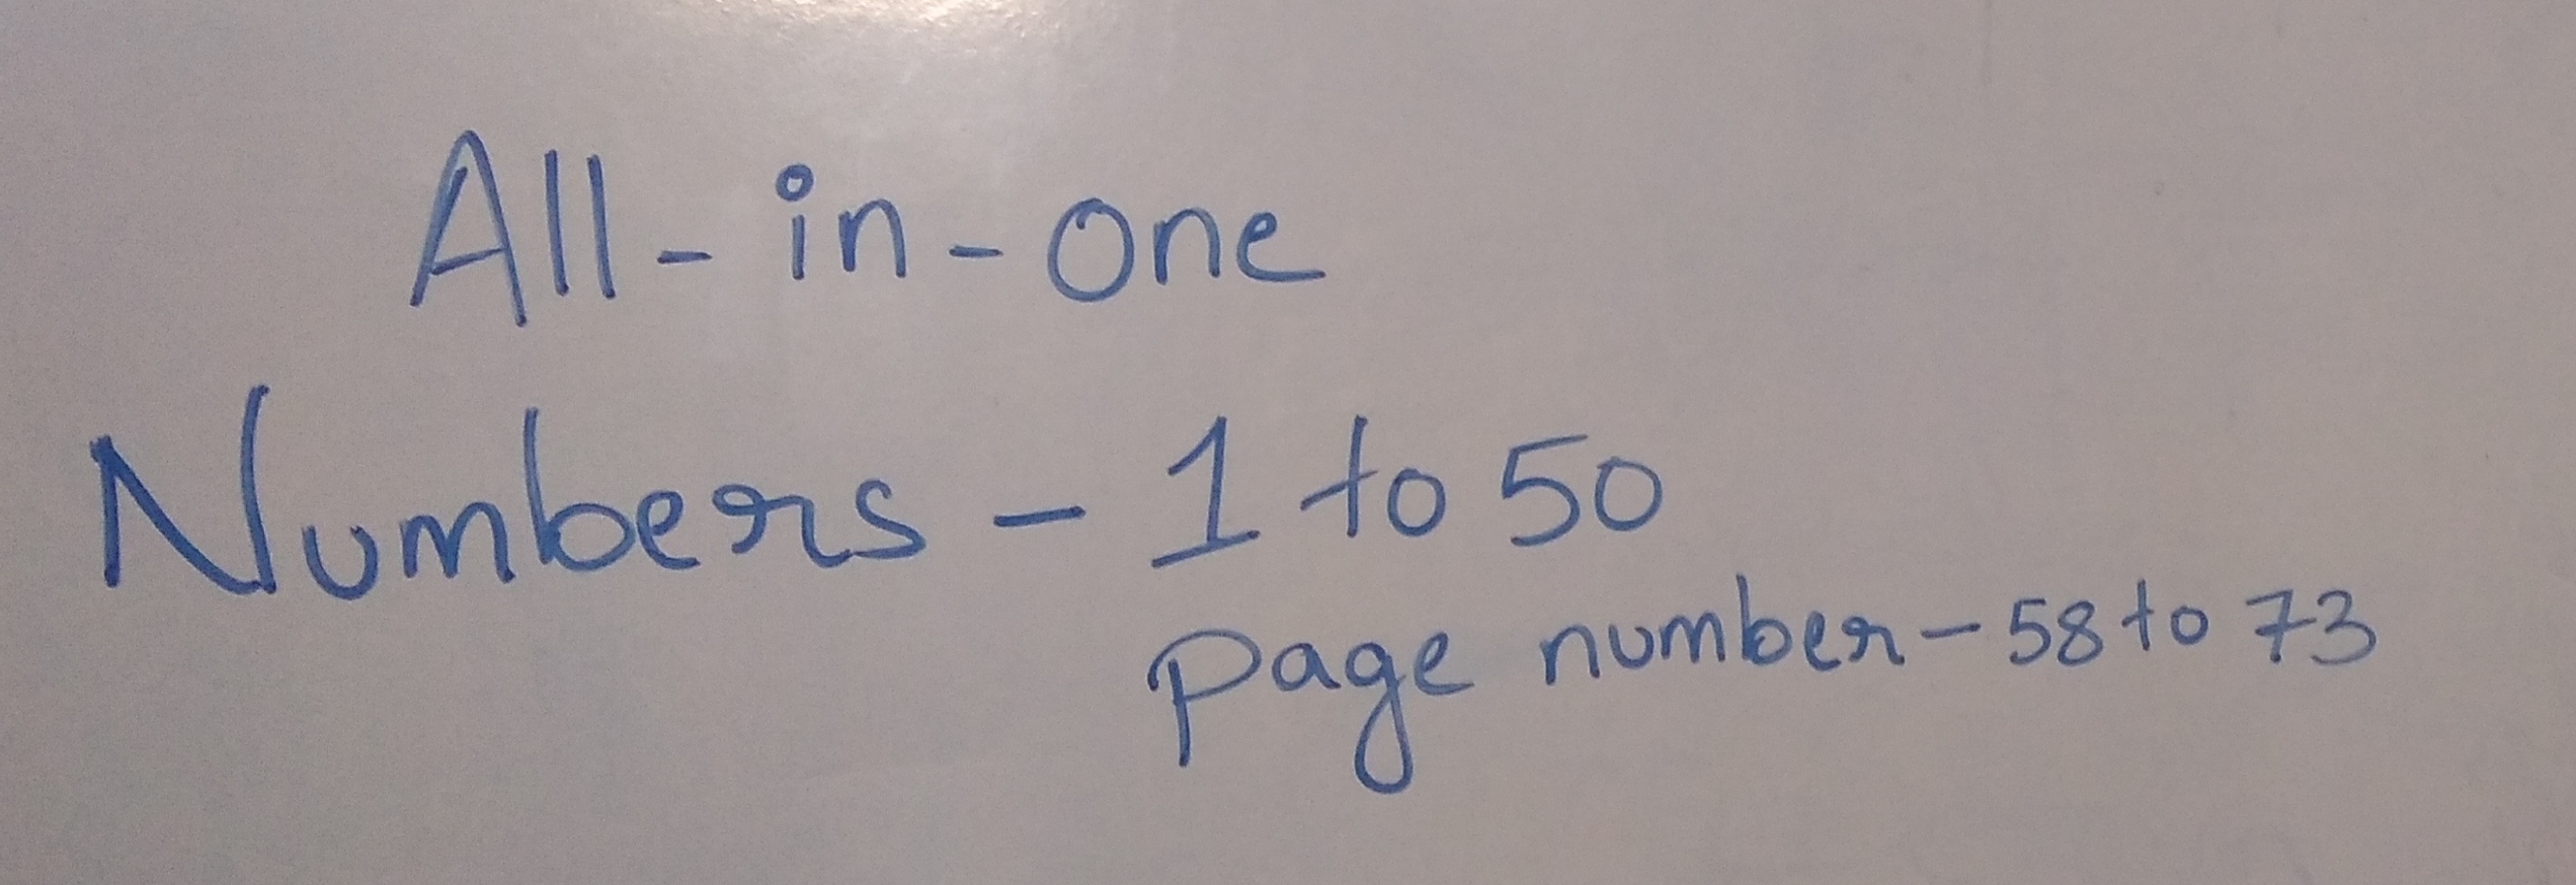 All-in-one
Numbers - 1 to 50
Page number - 58 to 73